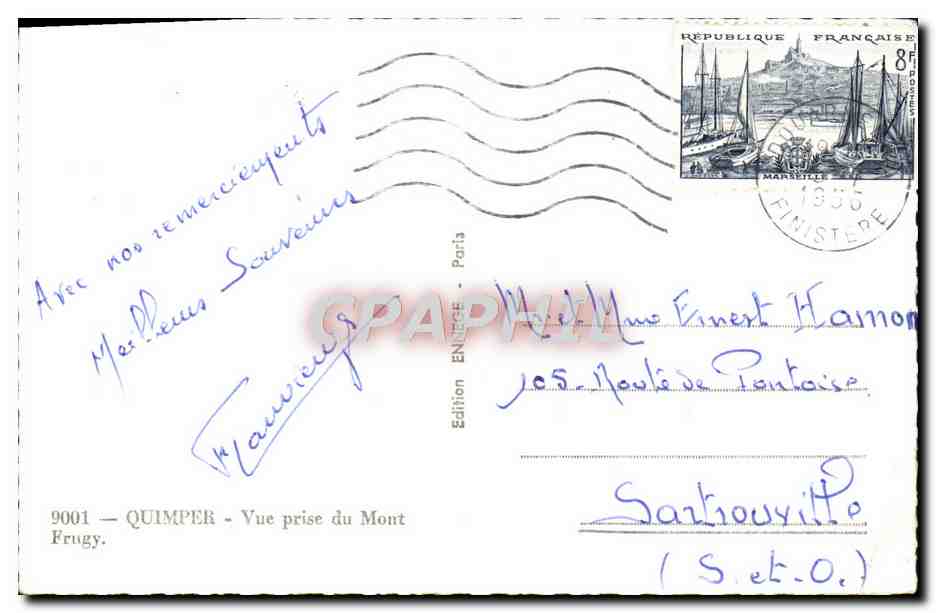 Avec nos remerciements
Meilleurs Souvenirs
9001 — QUIMPER - Vue prise du Mont
Frugy.
Edition ENNEGE - Paris
CPAPHIL
RÉPUBLIQUE FRANÇAISE
8F
POSTES
MARSEILLE
1956
FINISTERE
Mr et Mme Ernest Hamon
105 - Route de Pontoise
Sartrouville
(S. et. O.)